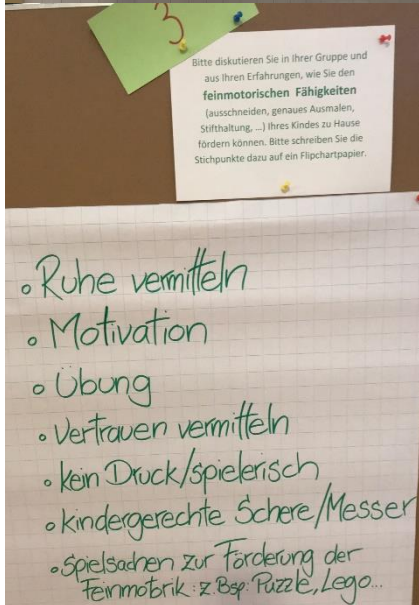 3
Bitte diskutieren Sie in Ihrer Gruppe und
aus Ihren Erfahrungen, wie Sie den
feinmotorischen Fähigkeiten
(ausschneiden, genaues Ausmalen,
Stifthaltung, ...) Ihres Kindes zu Hause
fördern können. Bitte schreiben Sie die
Stichpunkte dazu auf ein Flipchartpapier.
• Ruhe vermitteln
• Motivation
• Übung
• Vertrauen vermitteln
• kein Druck/spielerisch
• kindergerechte Schere/Messer
• Spielsachen zur Förderung der
Feinmotorik: z.Bsp: Puzzle, Lego...